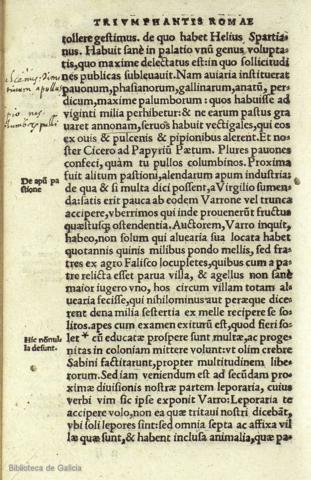 TRIVMPHANTIS ROMAE
tollere gestimus. de quo habet Helius Spartia
nus. Habuit sanè in palatio vnũ genus volupta
tis, quo maxime delectatus est: in quo sollicitudi
nes publicas subleuauit. Nam auiaria instituerat
pauonum, phasianorum, gallinarum, anatũ, per-
dicum, maxime palumborum: quos habuisse ad
viginti milia perhibetur: & ne earum pastus gra
uaret annonam, seruos habuit vectigales, qui eos
ex ouis & pulcenis & pipionibus alerent. Et no-
ster Cicero ad Papyriũ Pætum. Plures pauones
confeci, quàm tu pullos columbinos. Proxima
fuit alitum pastioni, alendarum apum industria:
de qua & si multa dici possent, a Virgilio sumen-
da: satis erit pauca ab eodem Varrone vel trunca
accipere, vberrimos qui inde prouenerũt fructus
quæstusq; ostendentia. Auctorem, Varro inquit,
habeo, non solum qui aluearia sua locata habet
quotannis quinis milibus pondo mellis, sed fra-
tres ex agro Falisco locupletes, quibus cum a pa-
tre relicta esset parua villa, & agellus non sanè
maior iugero vno, hos circum villam totam al-
uearia fecisse, qui nihilominus aut peræque dice-
rent dena milia sestertia ex melle recipere se so-
litos. apes cum examen exiturũ est, quod fieri so-
let * cũ educatæ prospere sunt multæ, ac proge-
nitas in coloniam mittere volunt: vt olim crebre
Sabini factitarunt, propter multitudinem libe-
rorum. Sed iam veniendum est ad secũdam pro-
ximæ diuisionis nostræ partem leporaria, cuius
verbi vim sic ipse exponit Varro: Leporaria te
accipere volo, non ea quæ tritaui nostri dicebãt,
vbi soli lepores sint: sed omnia septa ac affixa vil
læ quæ sunt, & habent inclusa animalia, quæ pa-
De apũ pa
stione
Hîc nõnul
la desunt.
Biblioteca de Galicia